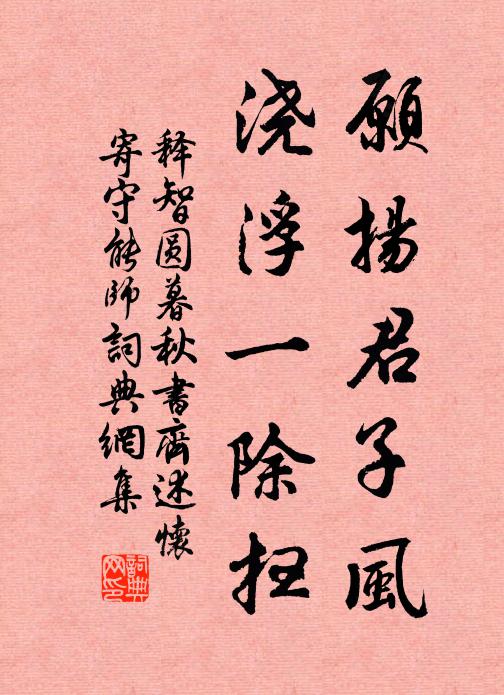 願揚君子風
浇浮一除扫
释智圆暮秋書齊述懷
寄守能師詞典網集
詞典网印